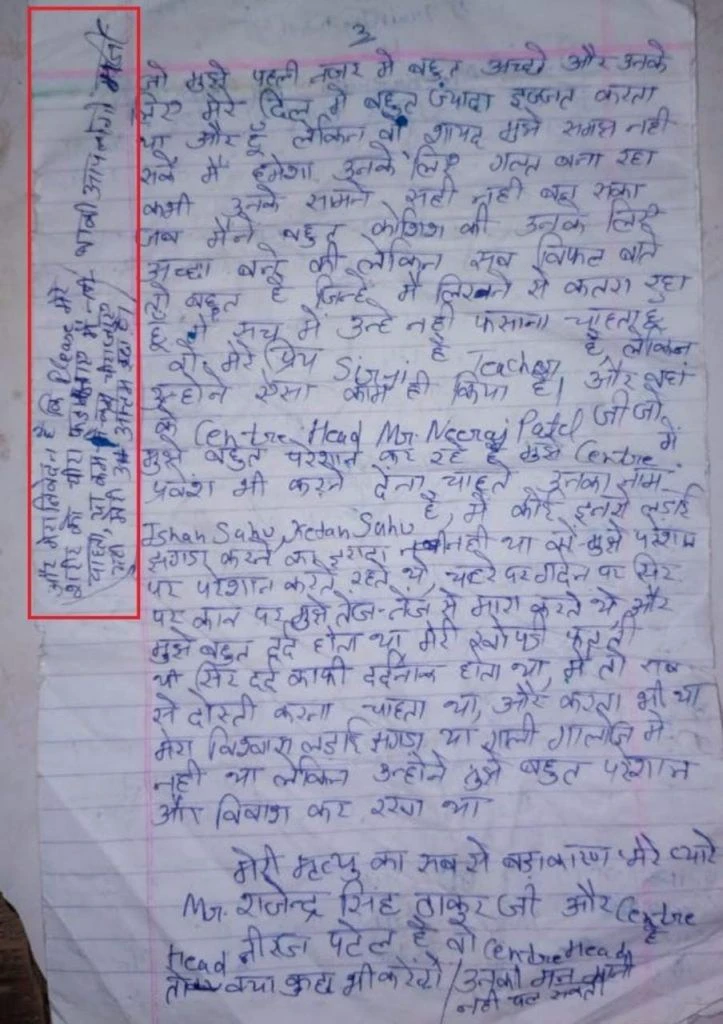 3
जो मुझे पहली नजर मे बहुत अच्छे और उनके
लिए मेरे दिल में बहुत ज्यादा इज्जत करता
था और हूं लेकिन वो शायद मुझे समझ नही
सके मैं हमेशा उनके लिए गलत बना रहा
कभी उनके सामने सही नही बन सका
जब मैंने बहुत कोशिश की उनके लिए
अच्छा बनने की लेकिन सब विफल बाते
तो बहुत है जिन्हें मैं लिखने से कतरा रहा
हूं मैं सच में उन्हे नही फसाना चाहता हूं
वो मेरे प्रिय Teacher है, लेकिन
उन्होने ऐसा काम ही किया है। और यहां
के Centre Head Mr. Neeraj Patel जी जो
मुझे बहुत परेशान कर रहे है मुझे Centre में
प्रवेश भी करने देना चाहते उनका नाम
Ishan Sahu, Vedan Sahu है, मे कोई इनसे लड़ाई
झगड़ा करने का इरादा नही था वो मुझे परेशान
पर परेशान करते रहते थे, चेहरे पर गर्दन पर सिर
पर कान पर मुझे तेज-तेज से मारा करते थे और
मुझे बहुत दर्द होता था मेरी खोपड़ी फटती
थी सिर दर्द काफी दर्दनाक होता था, मैं तो सब
से दोस्ती करना चाहता था, और करता भी था
मेरा विश्वास लड़ाई झगड़ा या गाली गालोज मे
नही था लेकिन उन्होने मुझे बहुत परेशान
और विवाश कर रखा था
मेरी मृत्यु का सबसे बड़ा कारण मेरे प्यारे
Mr. राजेन्द्र सिंह ठाकुर जी और Centre
Head नीरज पटेल है वो Centre Head है
तो क्या कुछ भी करेंगे / उनकी मन मानी
नही चल सकती
और मेरा निवेदन है कि Please मेरे
शरीर को चीरा फड़ा जाए मैं नही
चाहता,
यही मेरी अंतिम इच्छा है। बाकी आपलोगो मर्जी